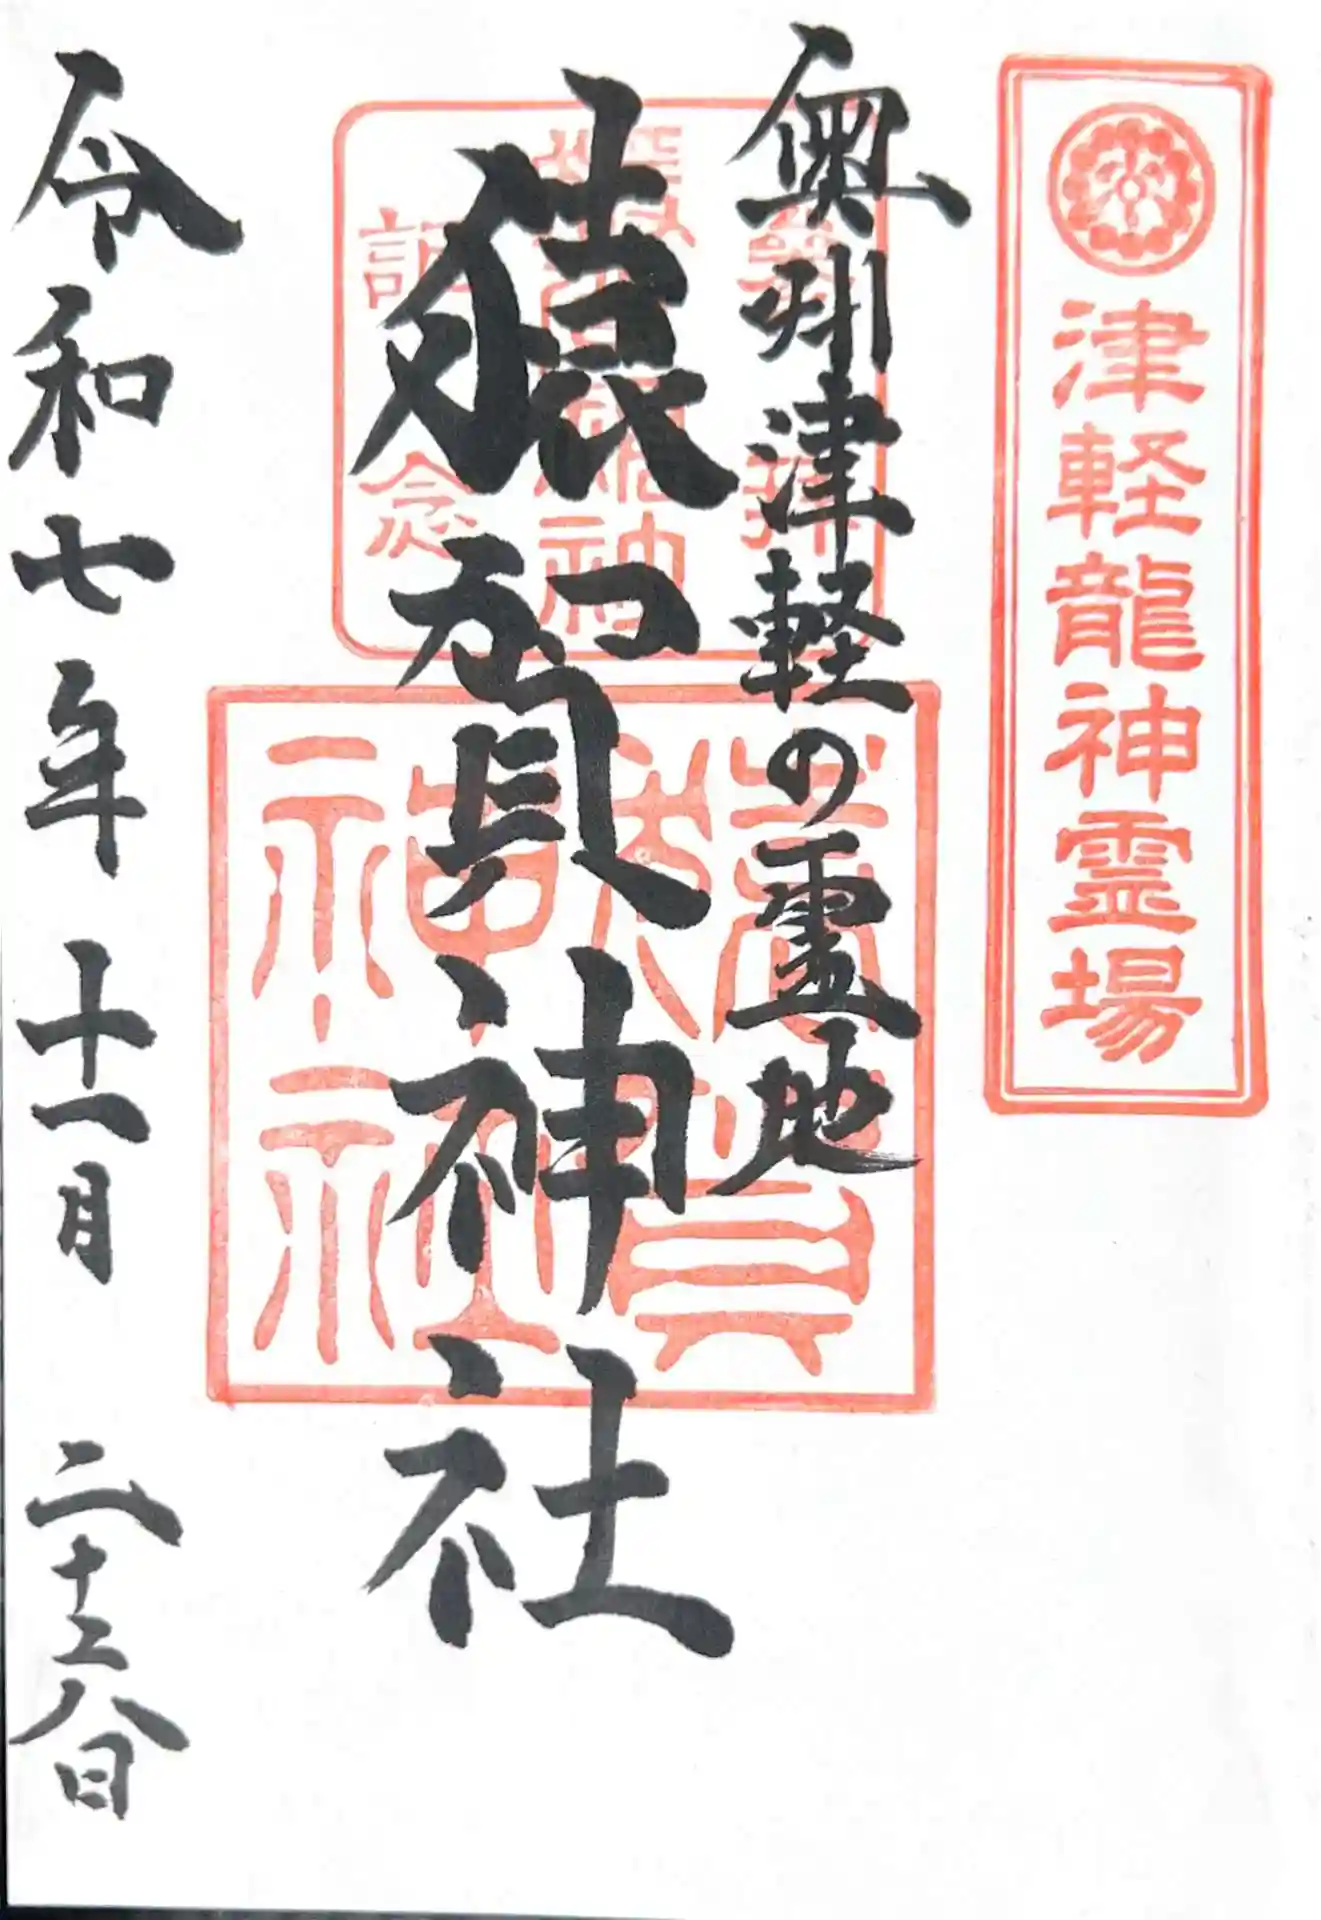 津軽龍神霊場
奥州津軽の霊地
猿賀神社
令和七年十一月二十六日
参拝
猿賀神社
記念
猿賀
神社